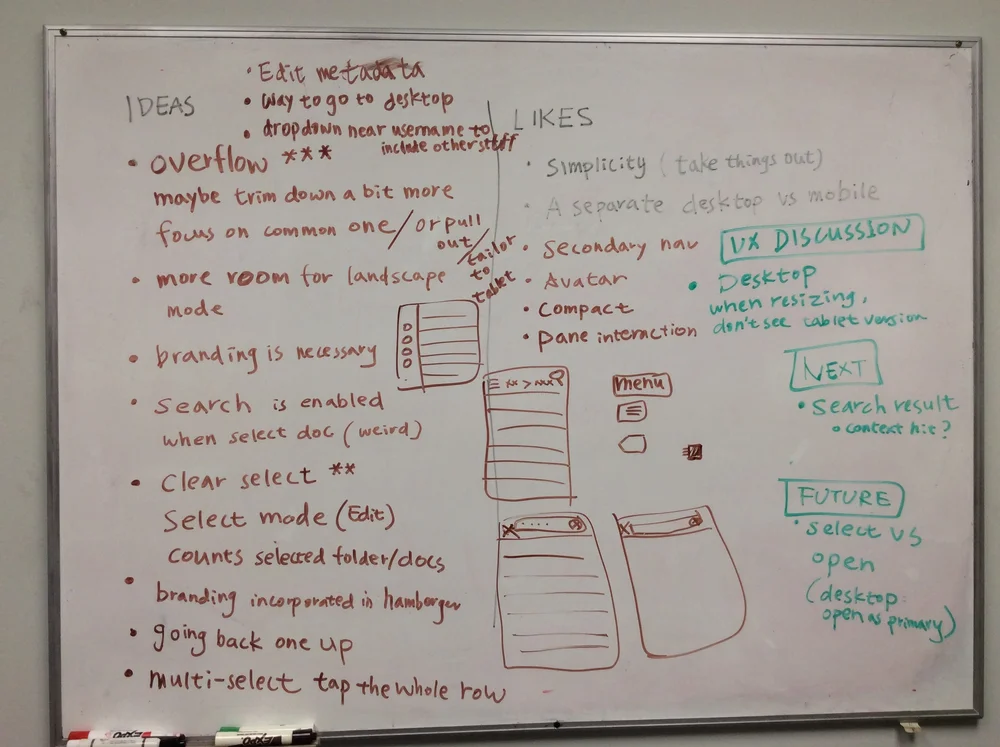 IDEAS
• Edit metadata
• way to go to desktop
• dropdown near username to
include other stuff
• overflow ***
maybe trim down a bit more
focus on common one / or pull
out / tailor
to
tablet
• more room for landscape
mode
• branding is necessary
• Search is enabled
when select doc (weird)
• Clear select **
Select mode (Edit)
counts selected folder/docs
• branding incorporated in hamberger
• going back one up
• multi-select tap the whole row
LIKES
• Simplicity (take things out)
• A separate desktop vs mobile
• Secondary nav
• Avatar
• Compact
• pane interaction
xx > xxx
menu
UX DISCUSSION
• Desktop
when resizing,
don't see tablet version
NEXT
• Search result
o context hit?
FUTURE
• select vs
open
(desktop:
open as primary)
EXPO
EXPO